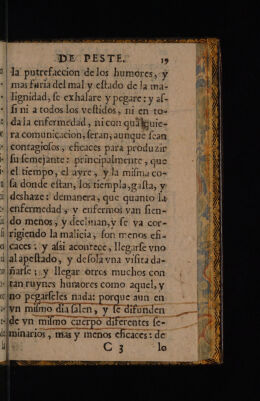 DE PESTE. 19
la putrefaccion de los humores, y
mas furia del mal y estado de la ma-
lignidad, se exhalare y pegare: y as-
si ni a todos los vestidos, ni en to-
da la enfermedad, ni con qualquie-
ra comunicacion, seran, aunque sean
contagiosos, eficaces para produzir
su semejante: principalmente, que
el tiempo, el ayre, y la misma co-
sa donde estan, los tiempla, gasta, y
deshaze: demanera, que quanto la
enfermedad, y enfermos van sien-
do menos, y declinan, y se va cor-
rigiendo la malicia, son menos efi-
caces: y assi acontece, llegarse vno
al apestado, y de sola vna visita da-
ñarse: y llegar otros muchos con
tan ruynes humores como aquel, y
no pegarseles nada: porque aun en
vn mismo dia salen, y se difunden
de vn mismo cuerpo diferentes se-
minarios, mas y menos eficaces: de
C 3 lo